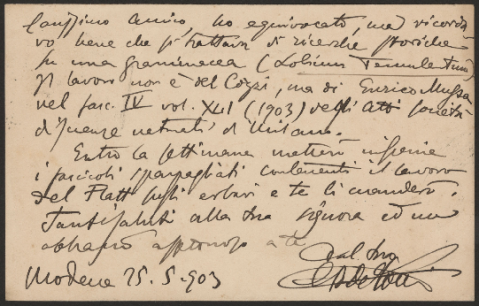 Carissimo amico, ho equivocato, ma ricorda
vo bene che si trattava di ricerche storiche
su una graminacea (Lolium Temulentum)
Il lavoro non è del Corpi, ma di Enrico Mussa
nel fasc. IV vol. XLI (1903) degli Atti Società
di Scienze naturali di Milano.
Entro la settimana metterò insieme
i fascicoli sparpagliati contenenti il lavoro
del Flatt sugli erbari e te li manderò.
Tanti saluti alla tua signora ed un
abbraccio affettuoso a te
dal tuo
Modena 25.5.903